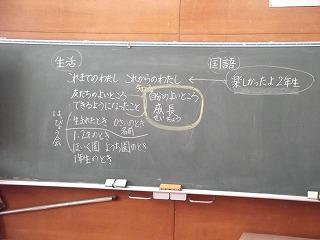 生活
国語
これまでのわたし これからのわたし
楽しかったよ2年生
友だちのよいところ
できるようになったこと
自分のよいところ
成長
せいちょう
生まれたとき 小さいとき
名前
1、2才のとき
ほいく園 ようち園のとき
1年生のとき
はっぴょう会